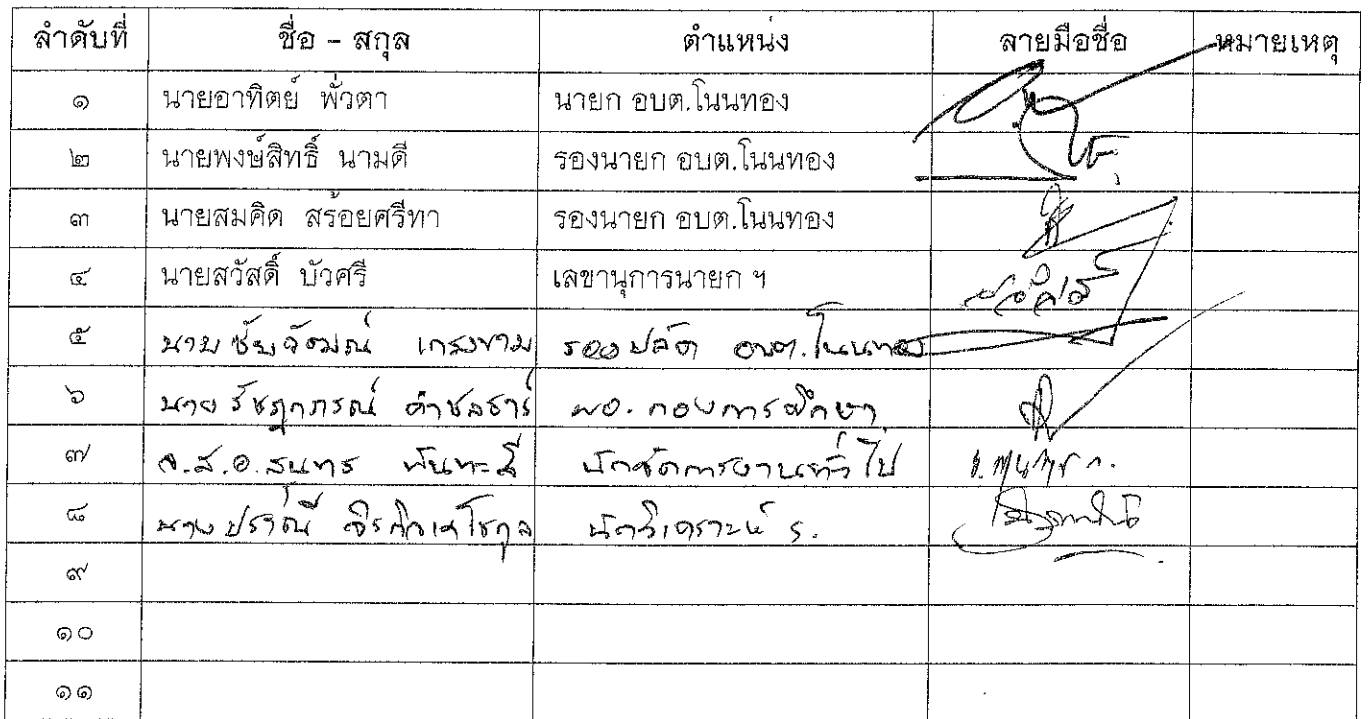 ลำดับที่ ชื่อ - สกุล ตำแหน่ง ลายมือชื่อ หมายเหตุ
๑ นายอาทิตย์ พั่วตา นายก อบต.โนนทอง
๒ นายพงษ์สิทธิ์ นามดี รองนายก อบต.โนนทอง
๓ นายสมคิด สร้อยศรีทา รองนายก อบต.โนนทอง
๔ นายสวัสดิ์ บัวศรี เลขานุการนายก ฯ
๕ นายชัยวัฒน์ รองปลัด อบต.โนนทอง
๖ นาย ผอ. กองการศึกษา
๗ จ.ส.อ. นักจัดการงานทั่วไป
๘ นางปราณี นักวิเคราะห์ ร.
๙
๑๐
๑๑